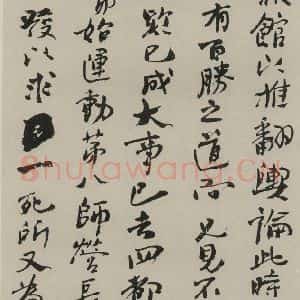 旅館以推翻輿論此時
有百勝之道而兄見不
敗已成大事已去四都
弟始運動第八師營長
發以求一死所又為
Shufawang.CN